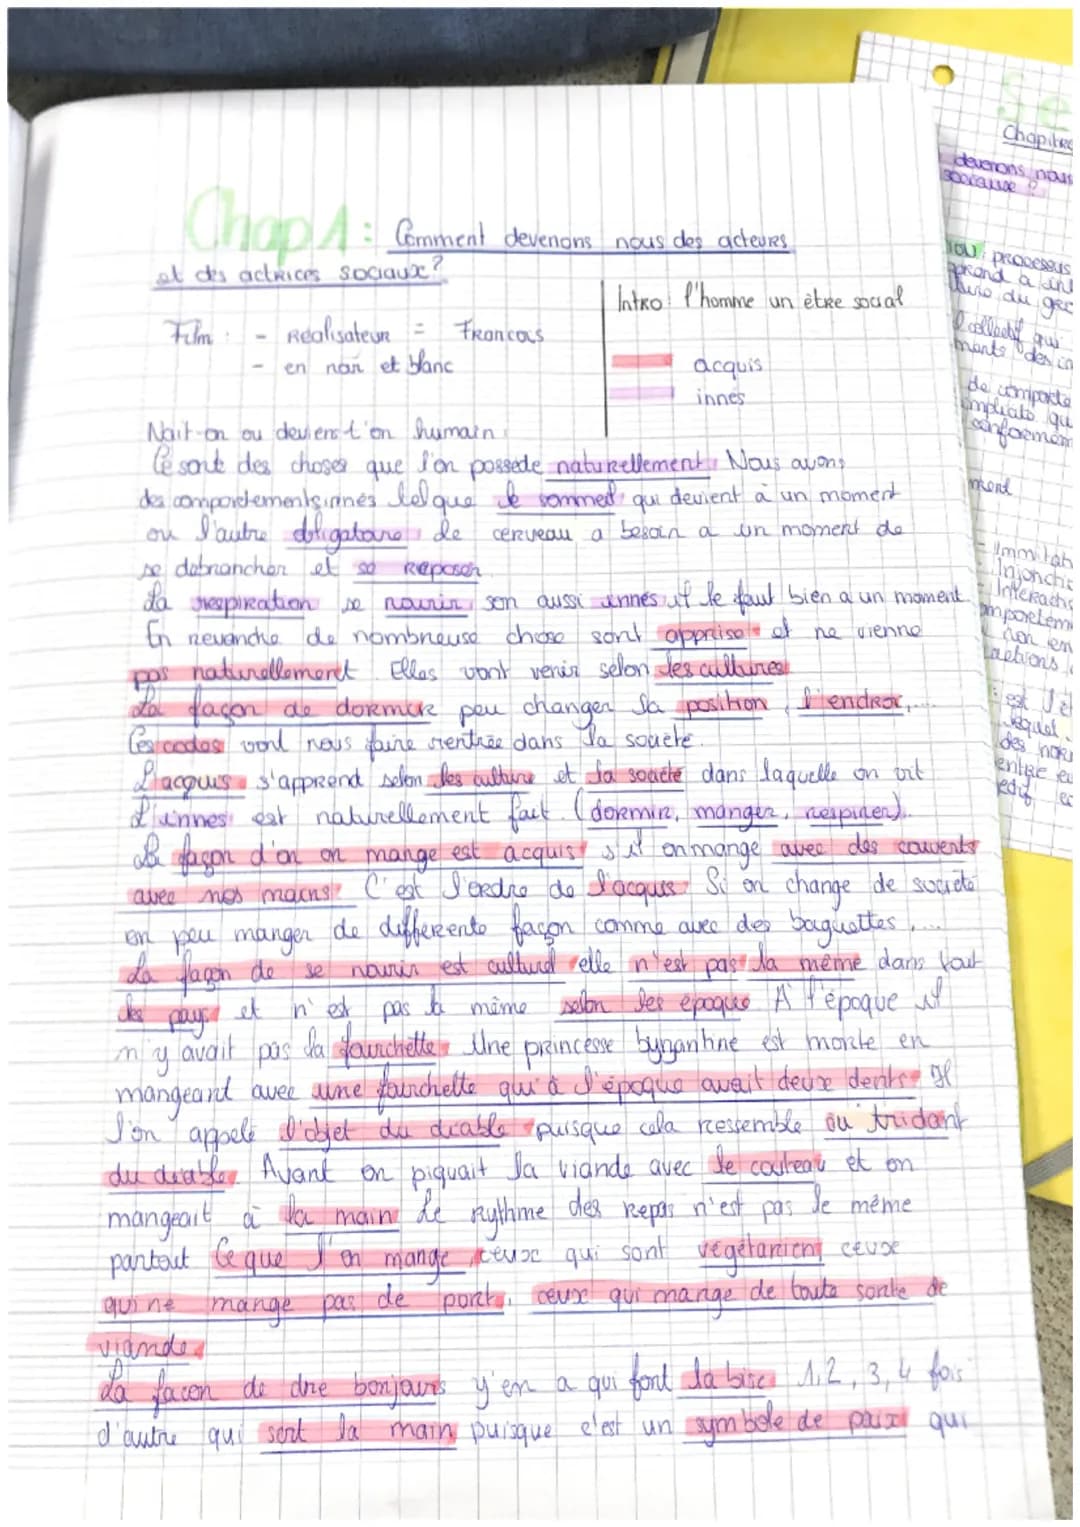 Chap 1 : Comment devenons nous des acteurs
et des actrices sociaux ?
Intro : l'homme un être social
Film : - Réalisateur = Francois
- en noir et blanc
acquis
innés
Nait-on ou devient t'on humain
Ce sont des choses que l'on possède naturellement. Nous avons
des comportements innés tel que le sommeil qui devient à un moment
ou l'autre obligatoire le cerveau a besoin a un moment de
se debrancher et se reposer
La respiration se nourir son aussi innés il le faut bien a un moment
En revanche de nombreuse chose sont apprise et ne vienne
pas naturellement Elles vont venir selon les cultures
La façon de dormir peu changer la position, l'endroi,...
Ces codes vont nous faire rentrée dans la société.
L'acquis s'apprend selon les culture et la société dans laquelle on vit
L'innés est naturellement fait. (dormir, manger, respirer)..
La façon d'on on mange est acquis s'il on mange avec des couverts
avec nos mains. C'est l'ordre de l'acquis Si on change de société
on peu manger de differente façon comme avec des baguettes,...
La façon de se nourir est culturel elle n'est pas la même dans tout
les pays et n'est pas la même selon les époque A l'époque il
n'y avait pas la fourchette Une princesse byzantine est morte en
mangeant avec une fourchette qui à l'époque avait deux dents. Il
l'on appelé l'objet du diable puisque cela ressemble au tridant
du diable. Avant on piquait la viande avec le couteau et on
mangeait à la main Le rythme des repas n'est pas le même
partout Ce que l'on mange, ceux qui sont végétarien, ceux
qui ne mange pas de porc, ceux qui mange de toute sorte de
viande.
La façon de dire bonjours y'en a qui font la bise 1, 2, 3, 4 fois
d'autre qui sert la main puisque c'est un symbole de paix qui
Se
Chapitre
devenons nous
sociaux ?
processus
du gro
collectif qui
des
de comporte
implicite qu
conformém
ment
Immitat
Injonctio
Interacti
comportem
actions
est
lequel
des norm
entre eu